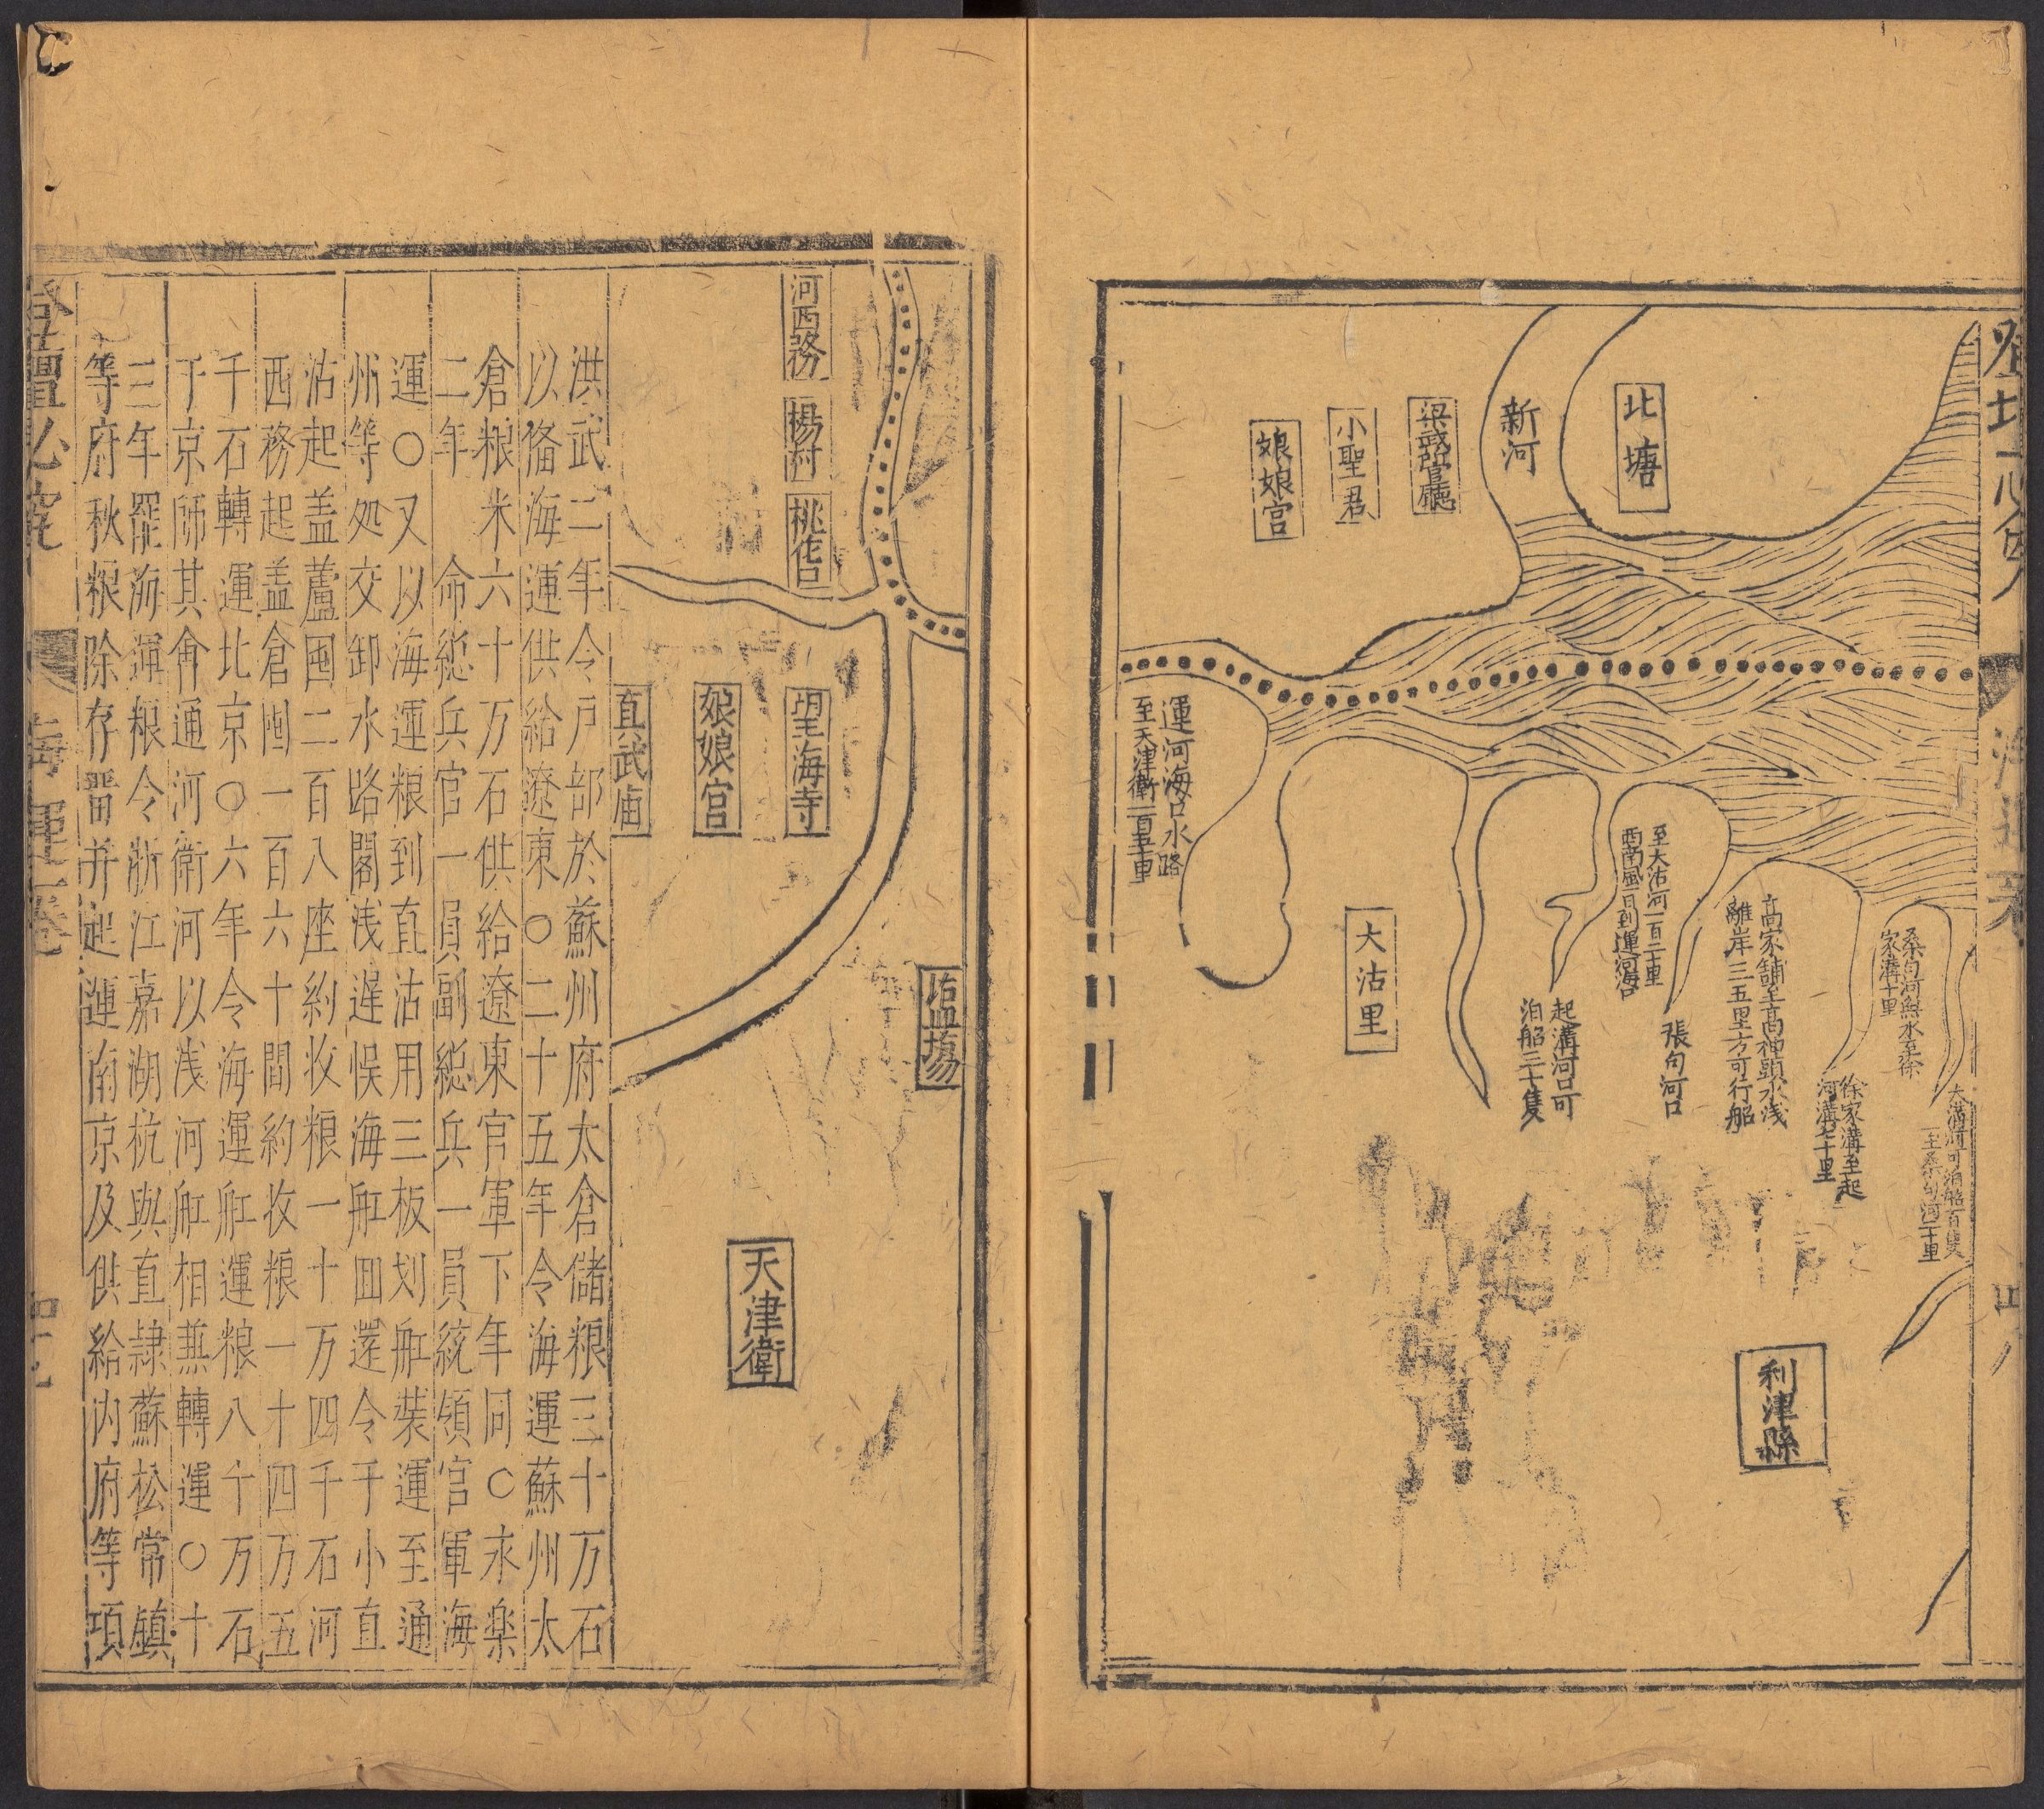 北塘
新河
梁武強官廳
小聖君
娘娘宮
運河海口水路
至天津衛一百五十里
大沽里
起溝河口可
泊船三十隻
至大沽河一百二十里
西南風一日到運河海口
張句河口
高家舖至高神頭水浅
離岸三五里方可行船
桑句河無水至徐
家溝十里
徐家溝至起
河溝七十里
大溝河可泊船百隻
至桑句河二十里
利津縣
河西務
楊村
桃花口
望海寺
娘娘宮
真武庙
天津衛
洪武二年令戸部於蘇州府太倉儲粮三十万石
以俻海運供給遼東○二十五年令海運蘇州太
倉粮米六十万石供給遼東官軍下年同○永楽
二年 命総兵官一員副総兵一員統領官軍海
運○又以海運粮到直沽用三板划舡裝運至通
州等処交卸水路閣浅遅悮海舡囬還令于小直
沽起盖蘆囤二百八座約收粮一十万四千石河
西務起盖倉囤一百六十間約收粮一十四万五
千石轉運北京○六年令海運舡運粮八十万石
于京師其會通河衛河以浅河舡相兼轉運○十
三年罷海運粮令浙江嘉湖杭與直隷蘇松常鎮
等府秋粮除存畱并起運南京及供給内府等項
登壇必究
海運一卷